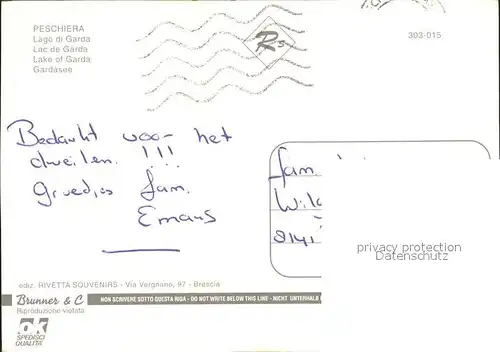 PESCHIERA
Lago di Garda
Lac de Garda
Lake of Garda
Gardasee
303-015
Bedankt voor het
dweilen. !!!
Groedjes fam.
Emans
fam.
8141
privacy protection
Datenschutz
ediz. RIVETTA SOUVENIRS - Via Vergnano, 97 - Brescia
Brunner & C
NON SCRIVERE SOTTO QUESTA RIGA - DO NOT WRITE BELOW THIS LINE - NICHT UNTERHALB
Riproduzione vietata
OK
SPEDISCI
QUALITÀ